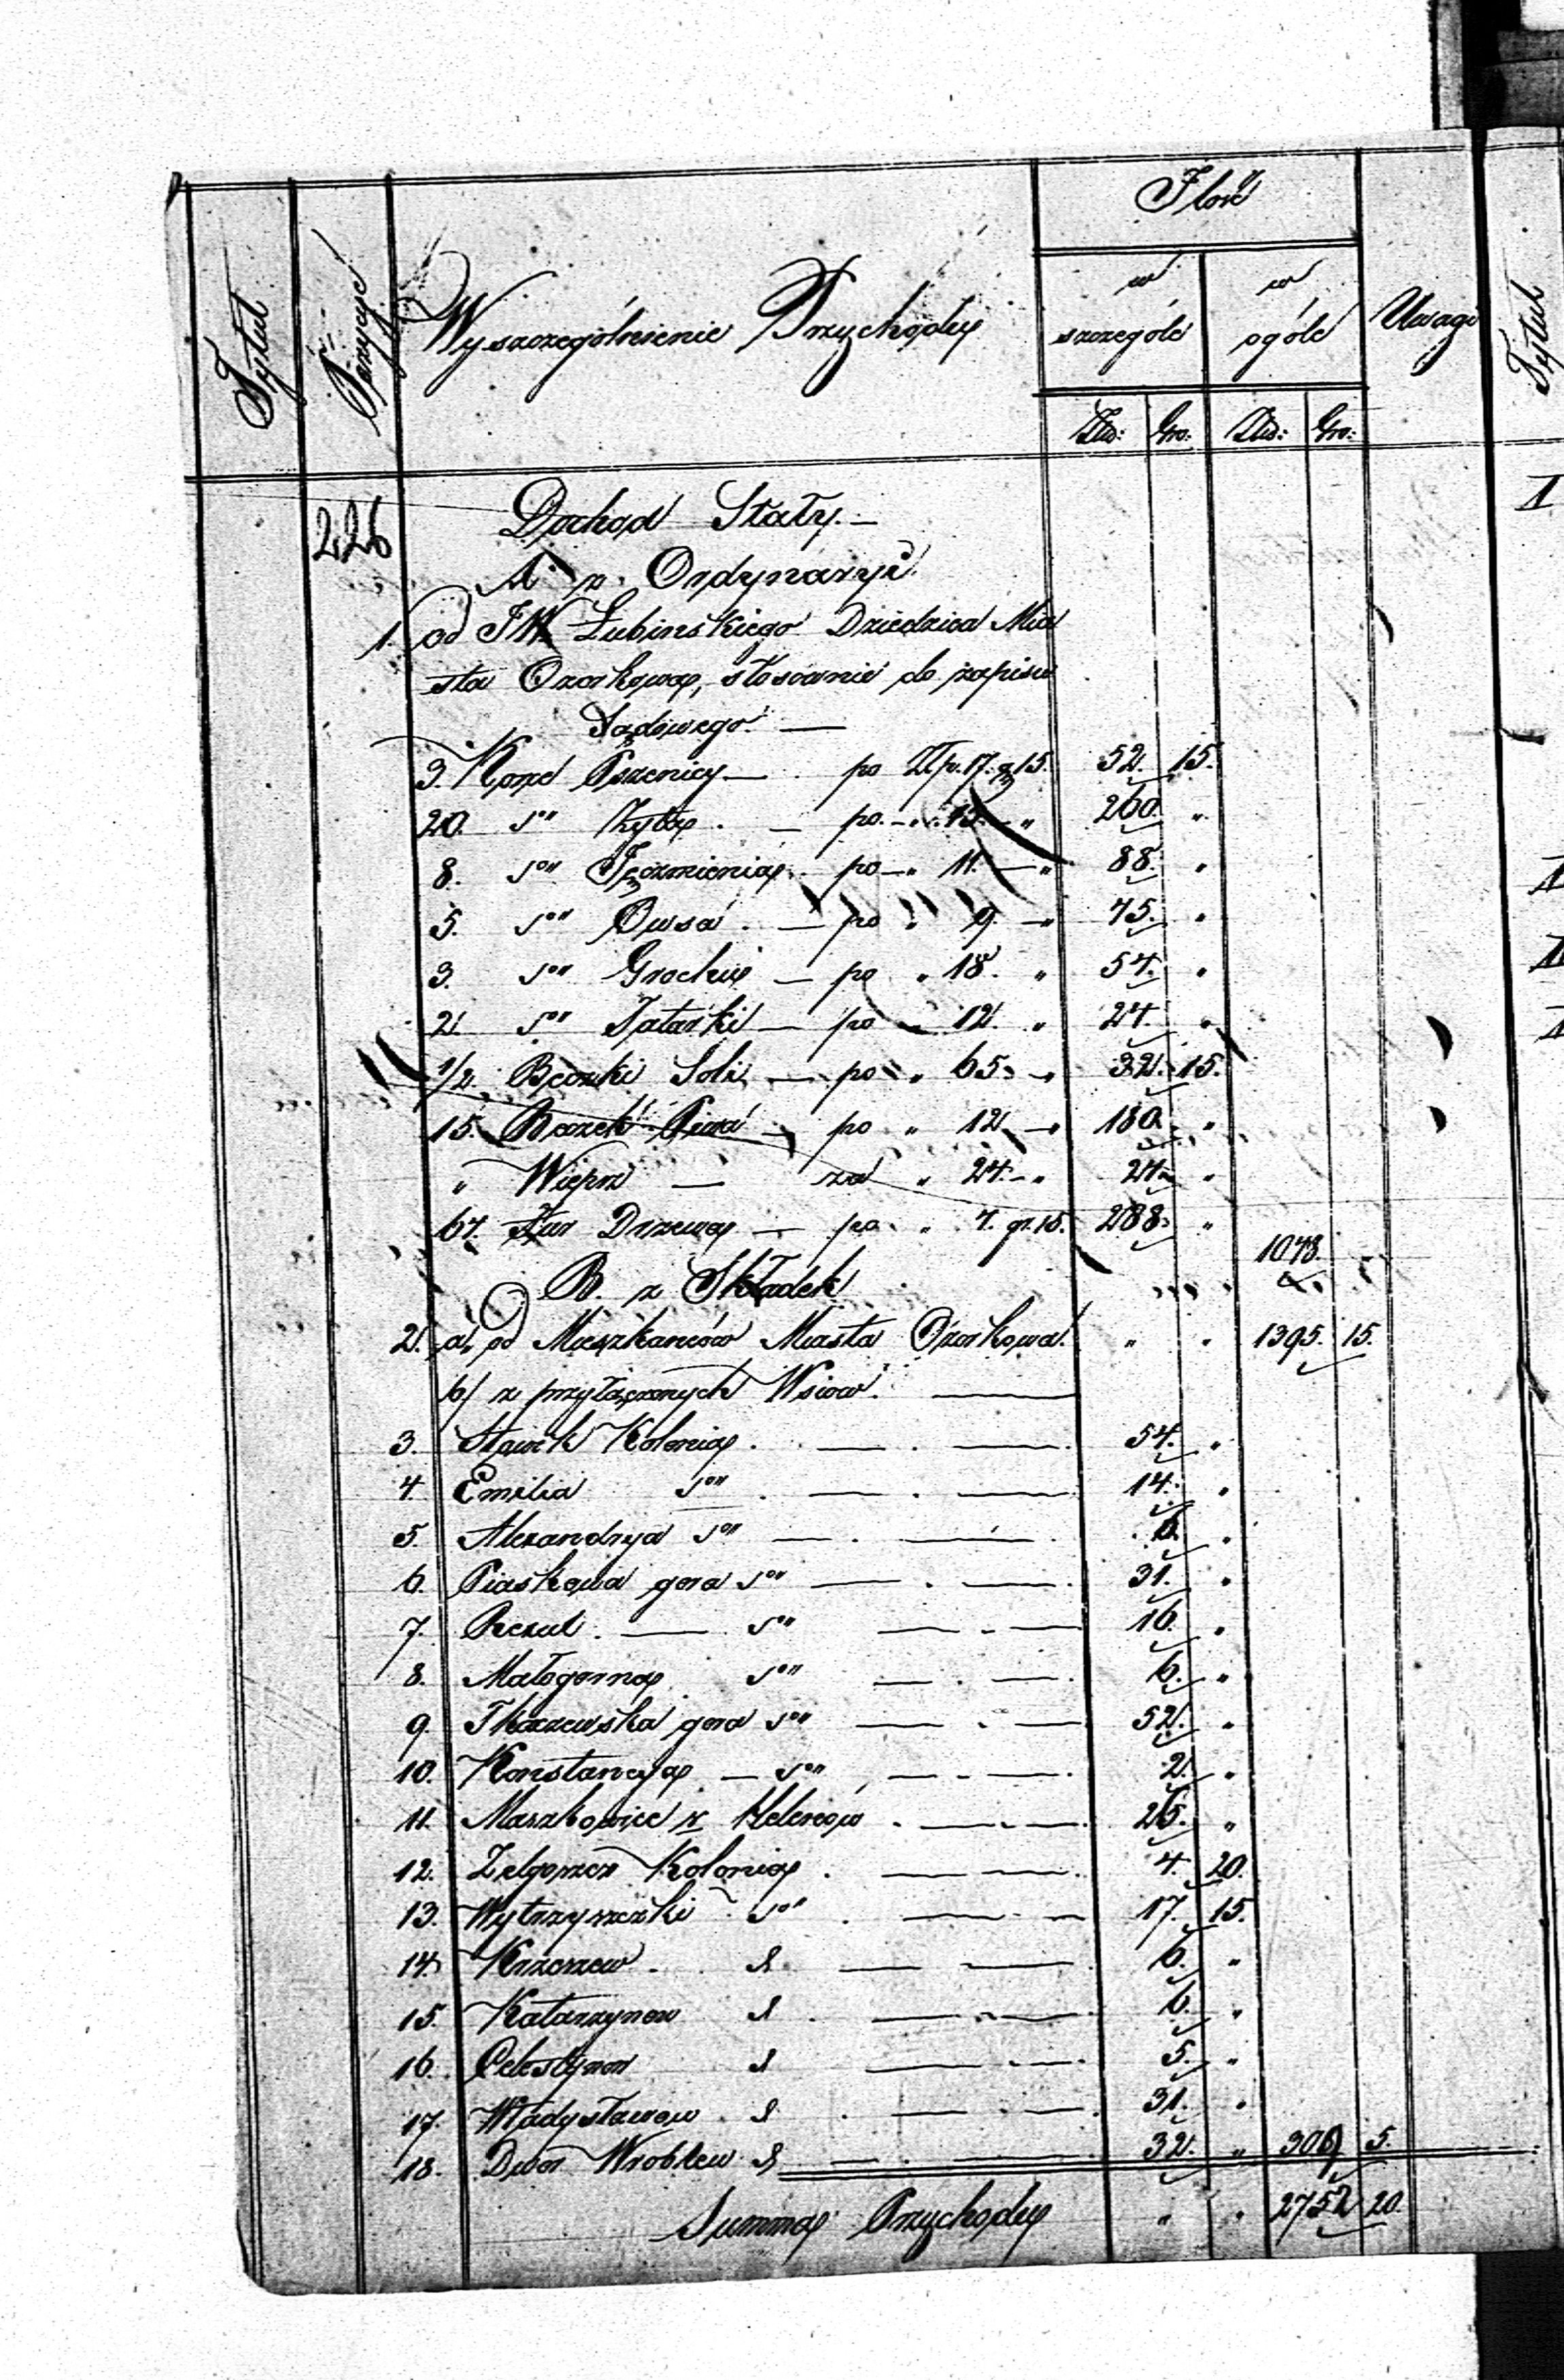 Tytuł
Pozycye
Wyszczególnienie Przychodu
Ilość
w szczególe
w ogóle
Uwagi
Tytuł
Złtd: Gro: Złtd: Gro:
226
Dochod Stały. —
A. z Ordynaryi
1. od JW Łubinskiego Dziedzica Mia
sta Ozorkowa, stosownie do zapisu
Sądowego. —
3. Korce Pszenicy — po Złp. 17. g 15. 52. 15.
20. do Zyta. — po — " 13. — " 260. "
8. do Jęczmienia. po — " 11. — " 88. "
5. do Owsa. — po " 9. — " 45. "
3. do Grochu — po " 18. " 54. "
2. do Tatarki — po — 12. " 24. "
1/2 Beczki Soli — po " 65. — " 32. 15.
15. Beczek Piwa — po " 12 — " 180. "
" Wieprz — za " 24. — " 24. "
64. Fur Drzewa — po " 4. gr. 15. 288. "
1048. "
B. z Składek
2. a, od Mieszkancow Miasta Ozorkowa. " " 1395. 15.
b/ z przyłączonych Wsiow. —
3. Stawek Kolonia. — . — 54. "
4. Emilia do . — . — 14. "
5. Alexandrya do — . — 6. "
6. Piaskowa gora do — . — 31. "
7. — do — . — 16. "
8. Małogorna do — . — 6. "
9. Tkaczewska gora do — . — 52. "
10. Konstancya — do — . — 2. "
11. Maszkowice z Helenow . — . — 25. "
12. Zelgoszcz Kolonia . — — 4. 20.
13. Wytrzyszczki do . — . — 17. 15.
14. Krzeszew . d — — 6. "
15. Katarzynow d . — . — 6. "
16. Celestynow d — . — 5. "
17. Władysławow . d . — . — 31. "
18. Dwor Wroblew d — . — 32. " 309 5.
Summa Przychodu " " 2752 20.